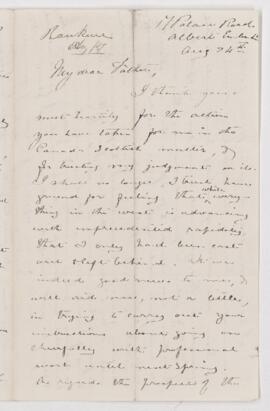 Palace Road
Albert Emb.t
Aug 24th
My dear Father,
I thank you
most heartily for the action
you have taken for me in the
Canada Scottish matter, &
for trusting my judgment in it.
I shall no longer, I trust, have
ground for feeling that while every
thing in the west is advancing
with unprecedented rapidity,
that I only had been cast
out & left behind. It was
indeed good news to me, &
will aid me, not a little,
in trying to carry out your
instructions about going on
cheerfully with professional
work until next Spring.
As regards the prospects of the